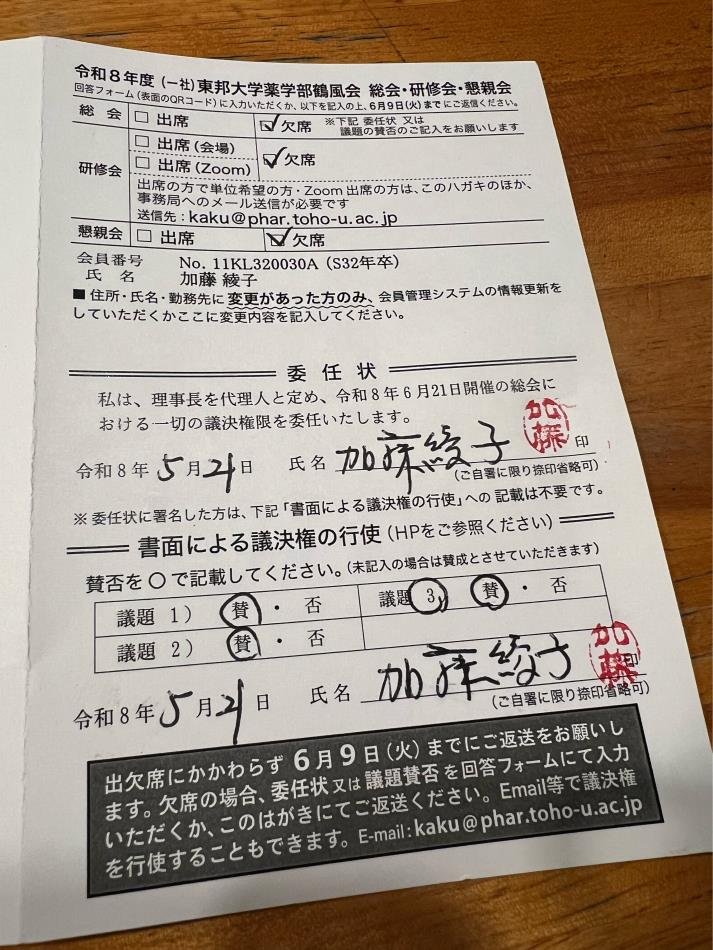 令和8年度 (一社) 東邦大学薬学部鶴風会 総会・研修会・懇親会
回答フォーム(表面のQRコード)に入力いただくか、以下を記入の上、6月9日(火)までにご返信ください。
総会 □ 出席 ☑ 欠席 ※下記 委任状 又は
議題の賛否のご記入をお願いします
研修会 □ 出席 (会場) ☑ 欠席
□ 出席 (Zoom)
出席の方で単位希望の方・Zoom 出席の方は、このハガキのほか、
事務局へのメール送信が必要です
送信先:kaku@phar.toho-u.ac.jp
懇親会 □ 出席 ☑ 欠席
会員番号 No. 11KL320030A (S32年卒)
氏名 加藤 綾子
■ 住所・氏名・勤務先に変更があった方のみ、会員管理システムの情報更新を
していただくかここに変更内容を記入してください。
委任状
私は、理事長を代理人と定め、令和8年6月21日開催の総会に
おける一切の議決権限を委任いたします。
加藤
令和8年5月21日 氏名 加藤綾子 印
(ご自署に限り捺印省略可)
※ 委任状に署名した方は、下記「書面による議決権の行使」への 記載は不要です。
書面による議決権の行使 (HPをご参照ください)
賛否を○で記載してください。(未記入の場合は賛成とさせていただきます)
議題 1) 賛 ・ 否 議題 3) 賛 ・ 否
議題 2) 賛 ・ 否
加藤
令和8年5月21日 氏名 加藤綾子 印
(ご自署に限り捺印省略可)
出欠席にかかわらず 6月9日(火)までにご返送をお願いし
ます。欠席の場合、委任状 又は 議題賛否 を回答フォームにて入力
いただくか、このはがきにてご返送ください。Email等で議決権
を行使することもできます。E-mail:kaku@phar.toho-u.ac.jp